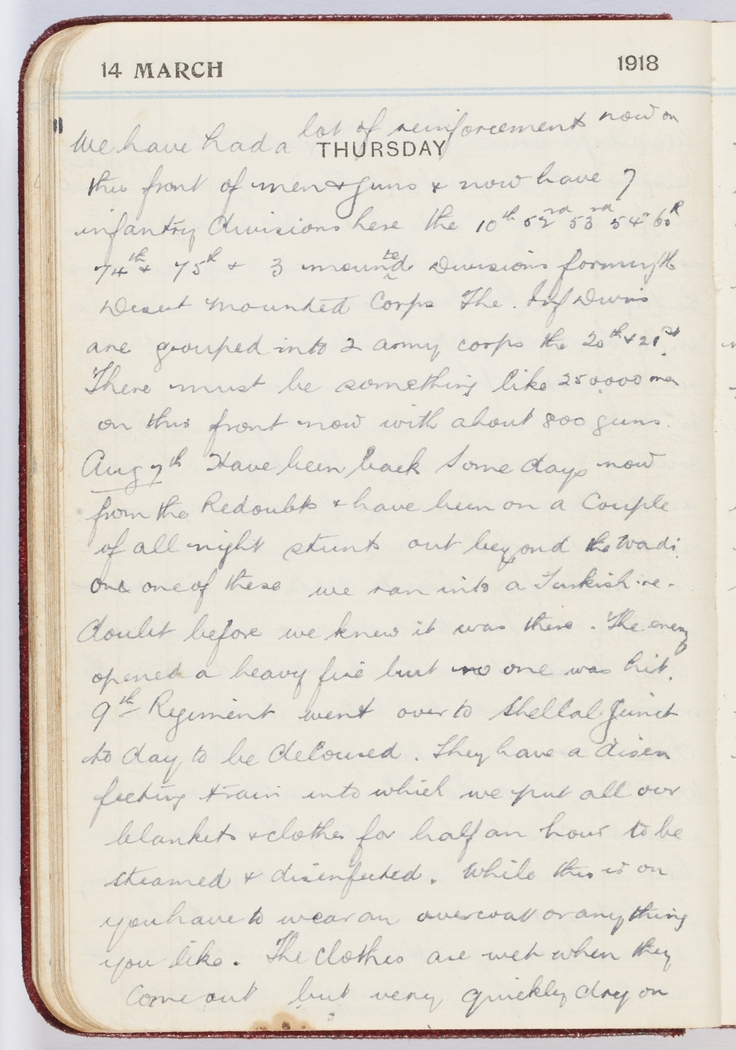 14 MARCH 1918
We have had a lot of reinforcements now on
THURSDAY
this front of men & guns & now have 7
infantry divisions here the 10th 52nd 53rd 54th 60th
74th & 75th & 3 mounted Divisions forming the
Desert Mounted Corps The. Inf Divns
are grouped into 2 army corps the 20th & 21st.
There must be something like 250,000 men
on this front now with about 800 guns.
Aug 7th Have been back some days now
from the Redoubts & have been on a Couple
of all night stunts out beyond the Wadi.
one one of these we ran into a Turkish re-
doubt before we knew it was there. The enemy
opened a heavy fire but no one was hit.
9th Regiment went over to Shellal Junct
to day to be deloused. They have a disen
fecting train into which we put all our
blankets & clothes for half an hour to be
steamed & disinfected. While this is on
you have to wear an overcoat or anything
you like. The clothes are wet when they
Come out but very quickly dry on